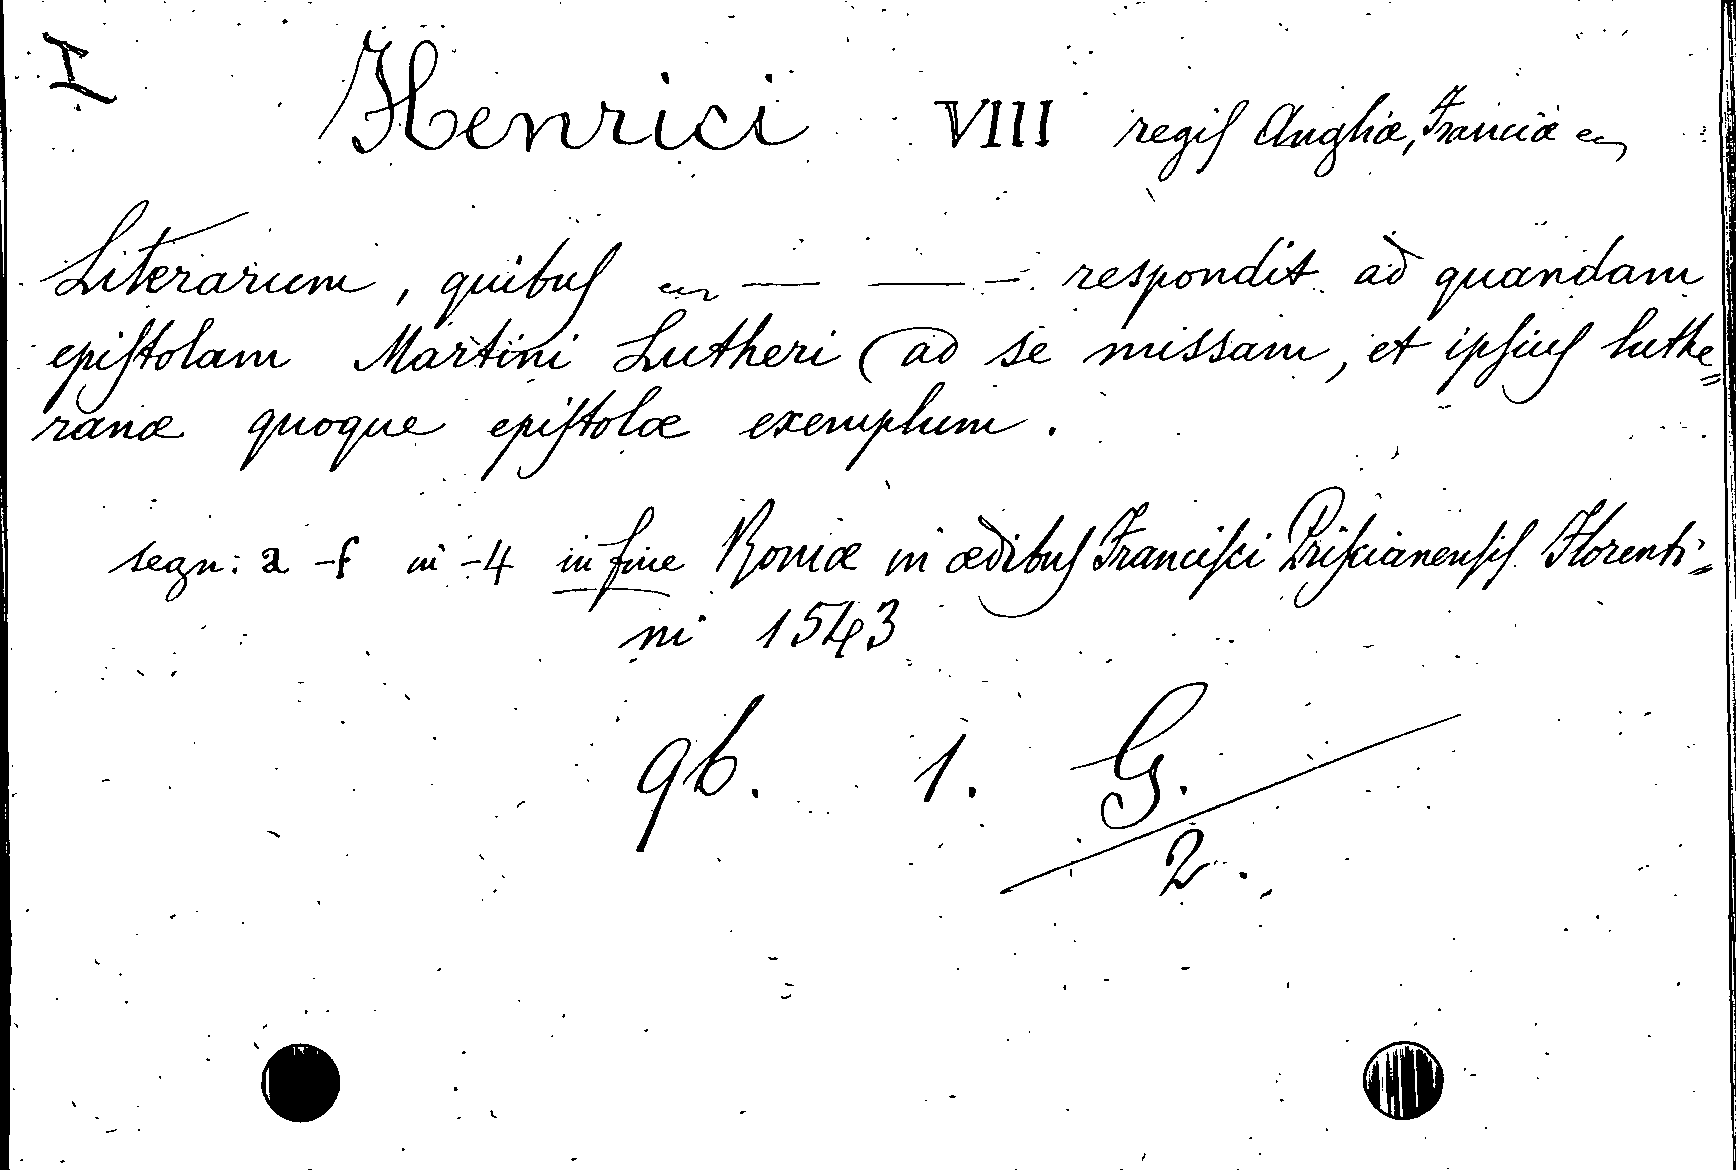 I
Henrici VIII regis Angliæ, Franciæ
Literarum, quibus — — — respondit ad quandam
epistolam Martini Lutheri (ad se missam, et ipsius luthe=
ranæ quoque epistolæ exemplum.
segn: a - f in -4 in fine Romæ in ædibus Francisci Priscianensis Florenti=
ni 1543
qb. 1. G.
2.